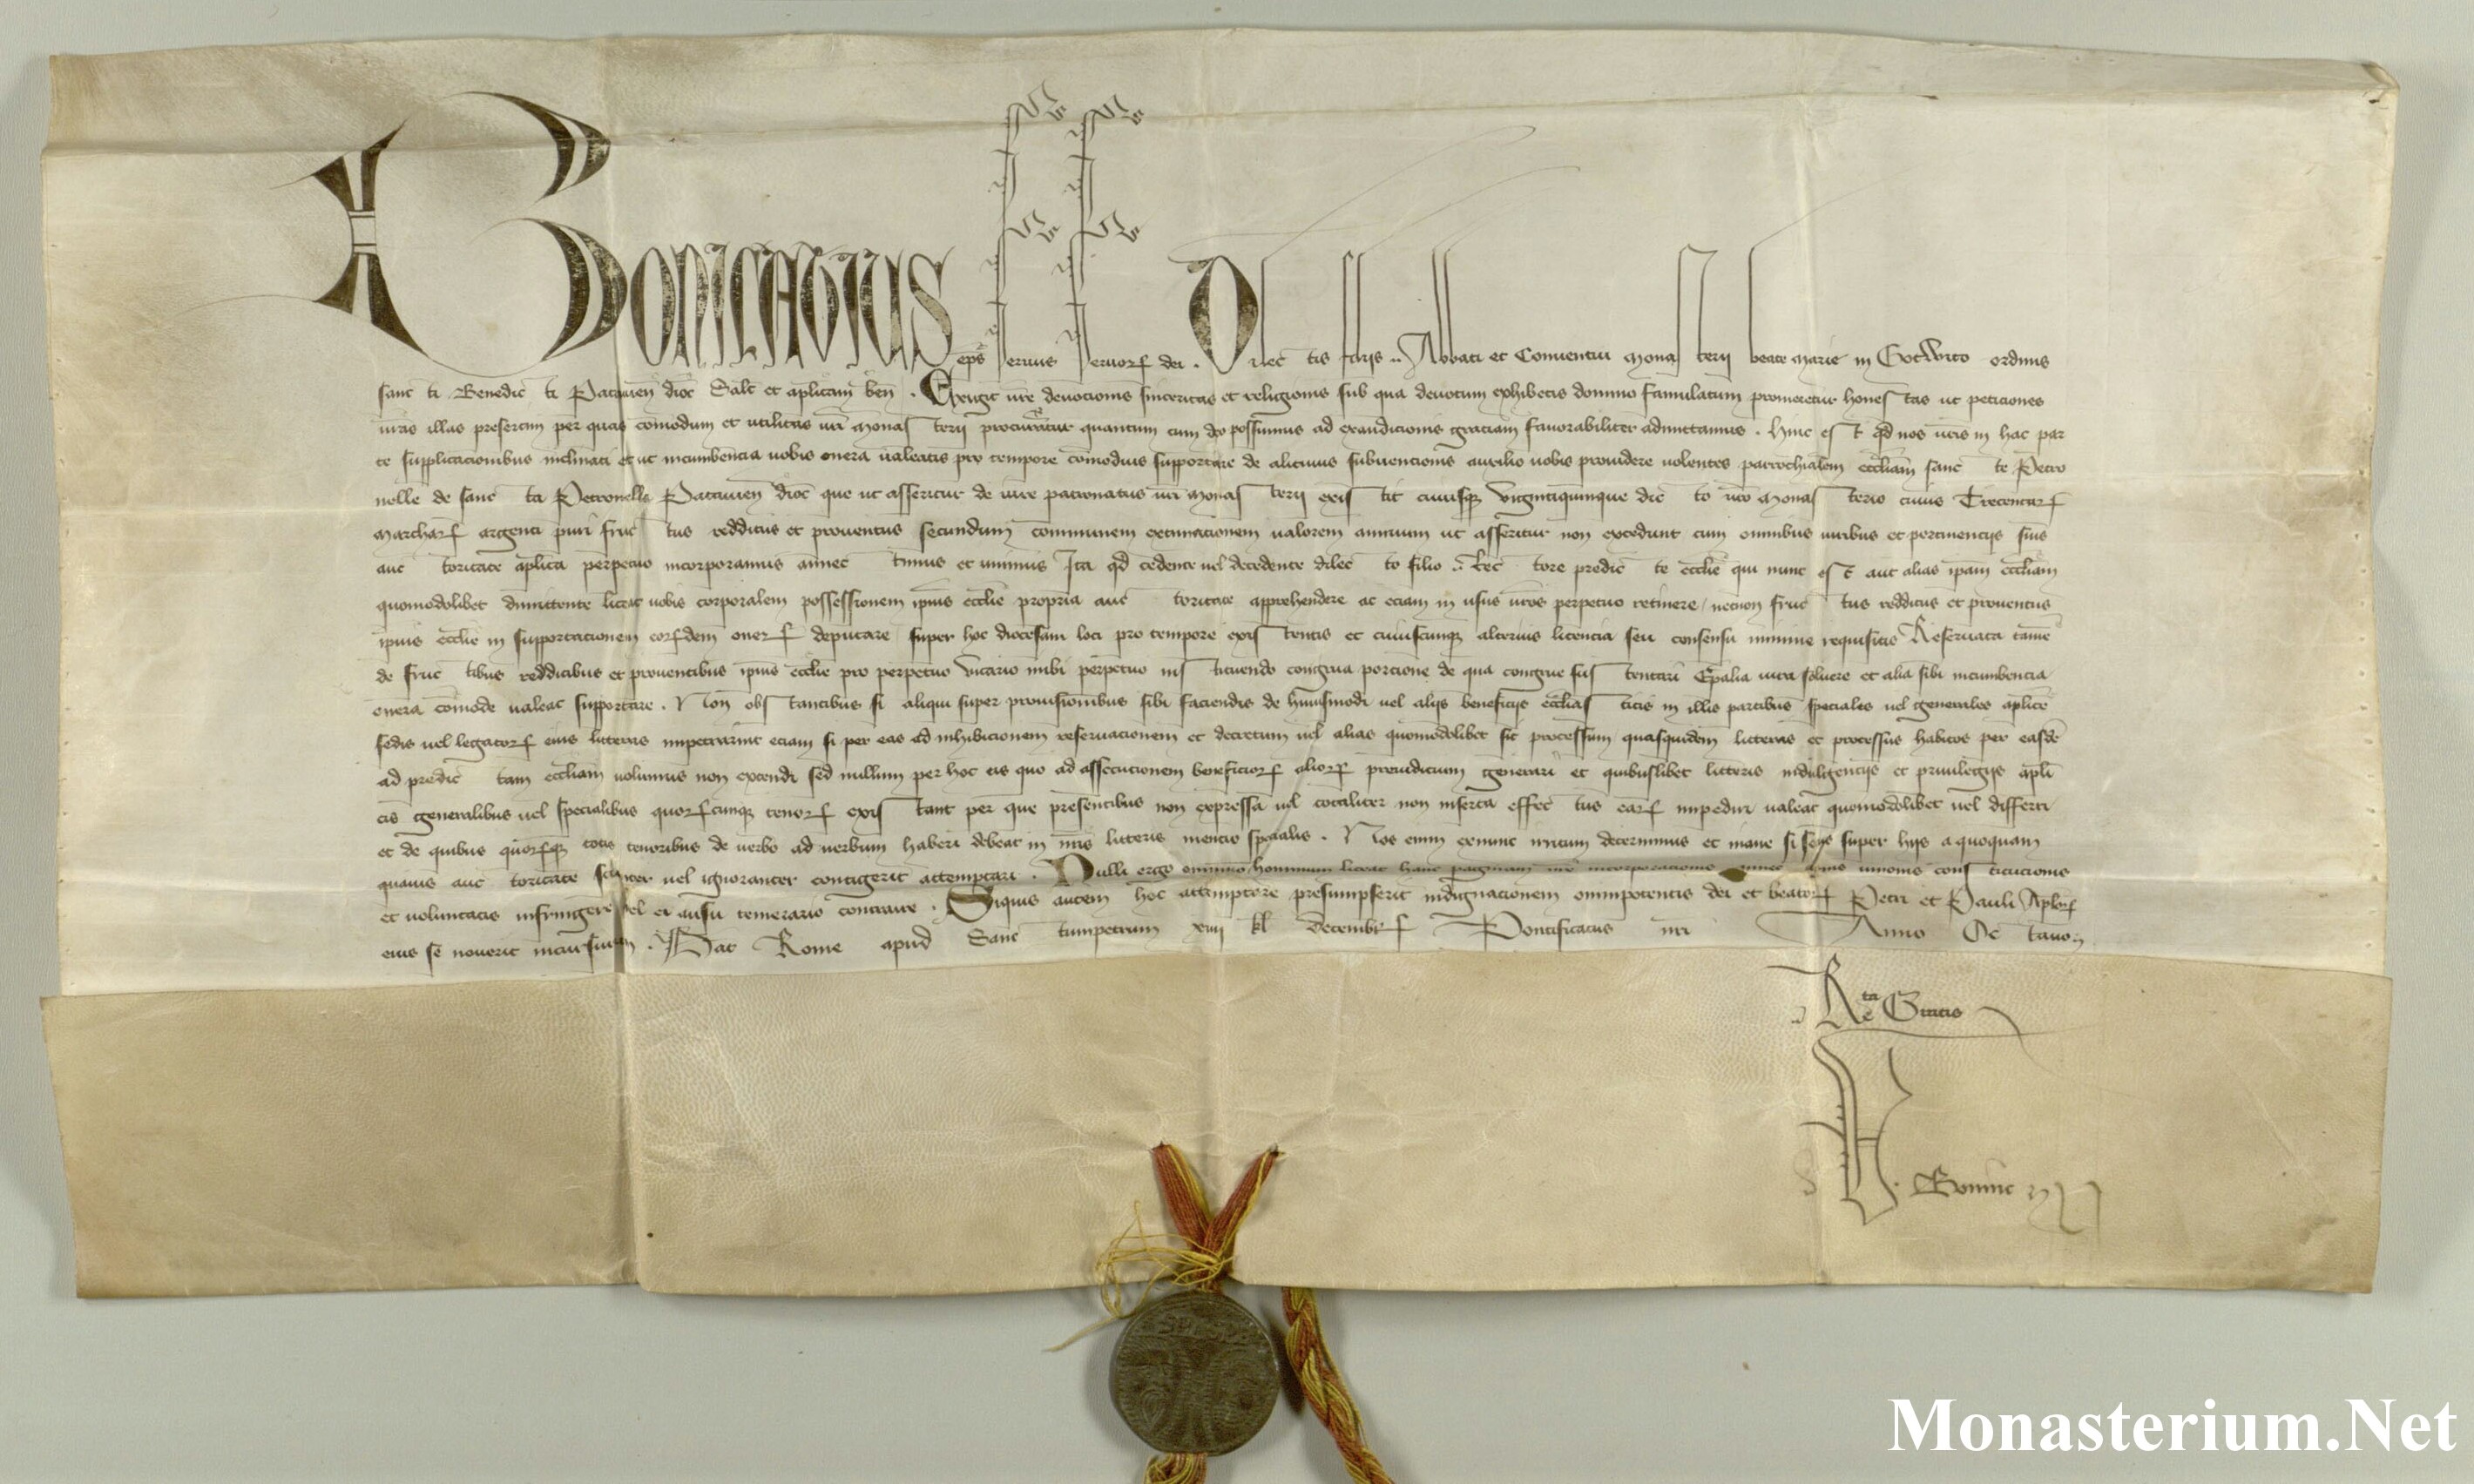 Bonifatius ep̄s seruus seruoꝝ dei . Dilectis filijs .. Abbati et Conuentui Monasterij beate Marie in Gotwico ordinis
sancti Benedicti Patauien̄ dioc̄ Salt̄ et ap̄licam ben̄ . Exigit ur̄e deuocionis sinceritas et religionis sub qua deuotum exhibetis domino famulatum promeretur honestas ut peticiones
ur̄as illas presertim per quas com̄odum et utilitas ur̄i Monasterij procuratur quantum cum deo possumus ad exaudicionis gratiam fauorabiliter admittamus . Hinc est qd̄ nos ur̄is in hac par
te supplicacionibus inclinati et ut incumbencia uobis onera ualeatis pro tempore com̄odius supportare de alicuius subuencionis auxilio uobis prouidere uolentes parrochialem eccl̄iam sancte Petro
nelle de sancta Petronella Patauien̄ dioc̄ que ut asseritur de iure patronatus ur̄i Monasterij existit cuiusqꝫ vigintiquinque dicto ur̄o Monasterio cuius Trecentaꝝ
Marcharꝝ argenti puri fructus redditus et prouentus secundum communem extimacionem ualorem annuum ut asseritur non excedunt cum omnibus iuribus et pertinencijs suis
auctoritate ap̄lica perpetuo incorporamus annectimus et unimus Ita qd̄ cedente uel decedente dilecto filio .. Rectore predicte eccl̄ie qui nunc est aut alias ip̄am eccl̄iam
quomodolibet dimittente liceat uobis corporalem possessionem ip̄ius eccl̄ie propria auctoritate apprehendere ac eciam in usus ur̄os perpetuo retinere / necnon fructus redditus et prouentus
ip̄ius eccl̄ie in supportacionem eorꝝdem onerꝝ deputare / super hoc diocesani loci pro tempore existentis et cuiuscunqꝫ alterius licencia seu consensu minime requisitis Reseruata tamē
de fructibus redditibus et prouentibus ip̄ius eccl̄ie pro perpetuo vicario inibi perpetuo instituendo congrua porcione de qua congrue sustentari Ep̄alia iura soluere et alia sibi incumbencia
onera com̄ode ualeat supportare . Non obstantibus si aliqui super prouisionibus sibi faciendis de hmōi uel alijs beneficijs eccl̄iasticis in illis partibus speciales uel generales ap̄lice
sedis uel legatorꝝ eius litteras impetrarint eciam si per eas ad inhibicionem reseruacionem et decretum uel alias quomodolibet sit processum quasquidem litteras et processus habitos per easdē
ad predictam eccl̄iam uolumus non extendi sed nullum per hoc eis quo ad assecucionem beneficiorꝝ aliorꝝ preiudicium generari et quibuslibet litteris indulgencijs et priuilegijs ap̄li
cis generalibus uel specialibus quorꝝcunqꝫ tenorꝝ existant per que presentibus non expressa uel totaliter non inserta effectus earꝝ impediri ualeat quomodolibet uel differri
et de quibus quorꝝqꝫ totis tenoribus de uerbo ad uerbum haberi debeat in nr̄is litteris mencio specialis . Nos enim exnunc irritum decernimus et inane si secus super hijs a quoquam
quauis auctoritate scienter uel ignoranter contigerit attemptari . Nulli ergo omnino hominum liceat hanc paginam nr̄e incorporacionis annectionis unionis constitucionis
et uoluntatis infringere uel ei ausu temerario contraire . Siquis autem hoc attemptare presumpserit indignacionem omnipotentis dei et beatorꝝ Petri et Pauli Ap̄lorꝝ
eius se nouerit incursurum . Dat Rome apud Sanctumpetrum xiiij kl̄ decembrꝭ Pontificatus nr̄i Anno Octauo
Rta Gratis
Boninc
Monasterium.Net